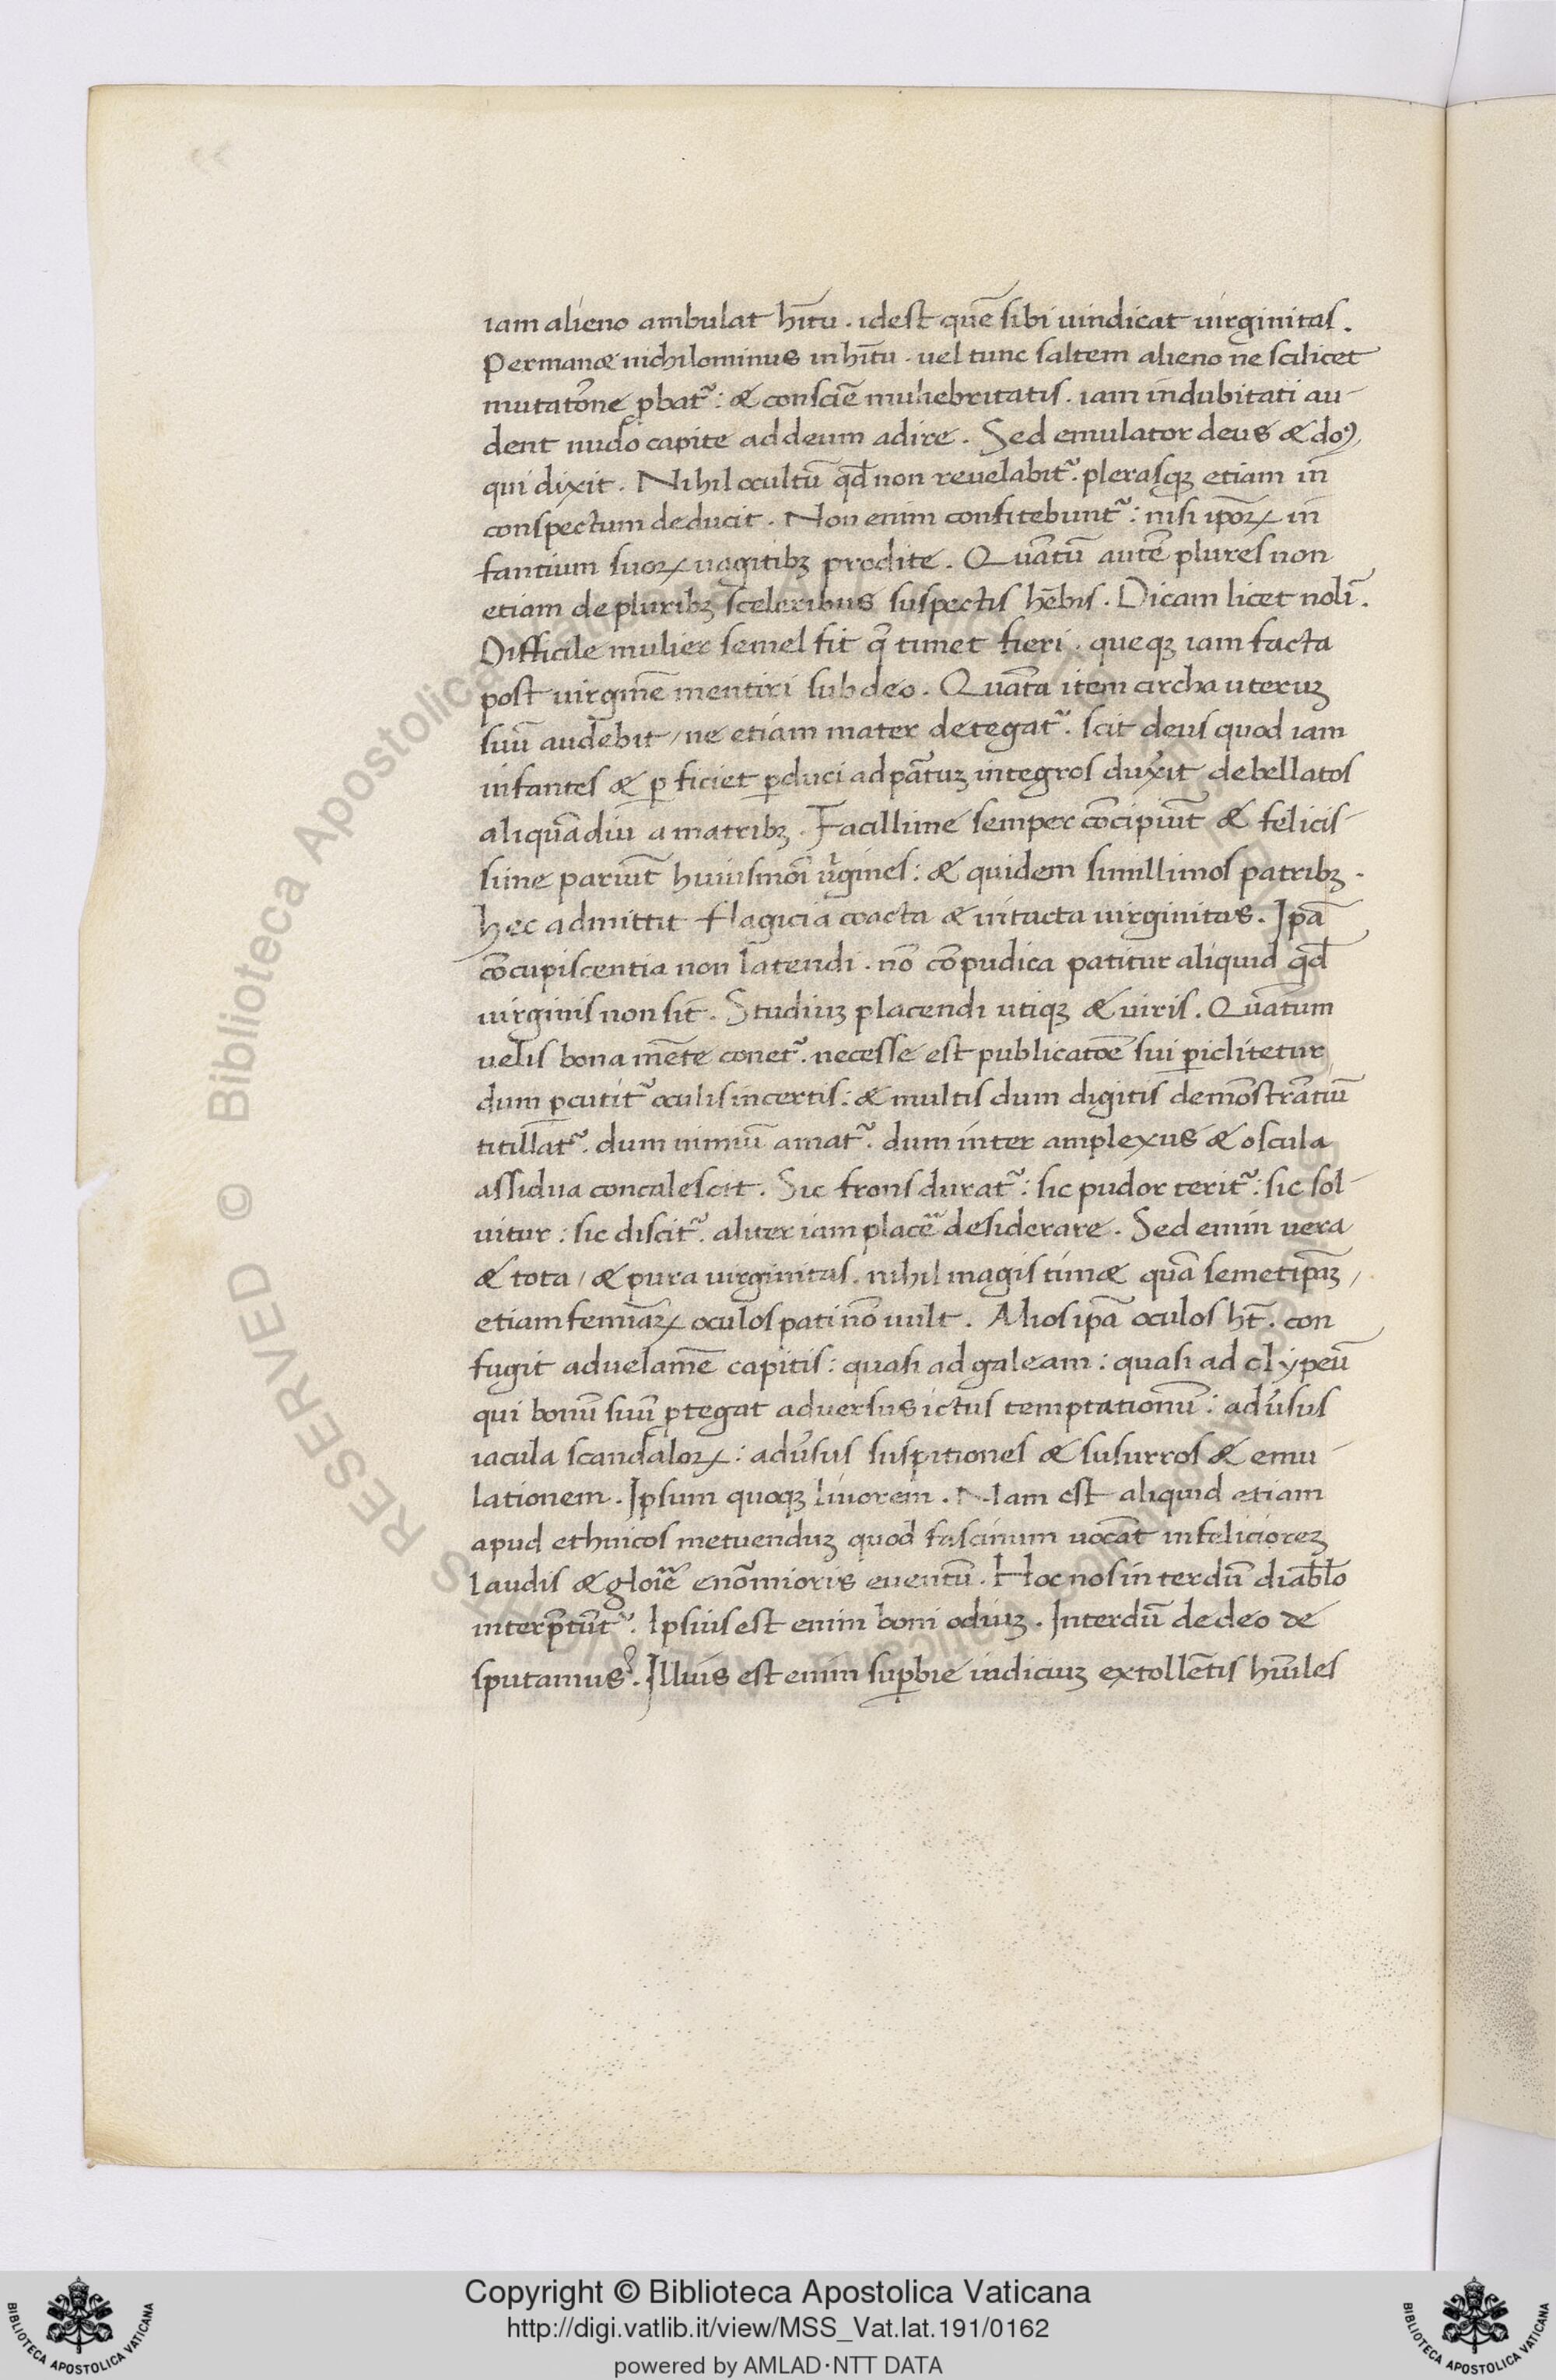 iam alieno ambulat hr̄tu . idest quē sibi uindicat uirginitas .
Permanæ nichilominus in hr̄tu . uel tunc saltem alieno ne scilicet
mutatōne ꝓbat᷑ : & consciē muliebritatis . iam indubitati au-
dent nudo capite ad deum adire . Sed emulator deus & doꝯ,
qui dixit . Nihil ocultū qd̄ non reuelabit᷑ . plerasqꝫ etiam in
conspectum deducit . Non enim confitebunt᷑ : nisi ipoꝝ in
fantium suoꝝ uagitibꝫ prodite . Quātū autē plures non
etiam de pluribꝫ sceleribus suspectis hēbis . Dicam licet nolī .
Difficile mulier semel fit q̄ timet fieri . queqꝫ iam facta
post uirginē mentiri sub deo . Quāta item circha uteruꝫ
suū audebit / ne etiam mater detegat᷑ . scit deus quod iam
infantes & ꝑ ficiet ꝑduci ad pātuꝫ integros duxit debellatos
aliquādiu a matribꝫ . Facillime semper cōcipiūt & felicis-
sime pariūt huiusmōi v̓gines : & quidem simillimos patribꝫ .
hec admittit flagicia coacta & intacta uirginitas . Ipā
cōcupiscentia non latendi . nō cōpudica patitur aliquid qd̄
uirginis non sit . Studiuꝫ placendi utiqꝫ & uiris . Quātum
uelis bona mēte conet᷑ . necesse est publicatōē sui ꝑiclitetur
dum ꝑcutit᷑ oculis incertis : & multis dum digitis demōstrātiū
titillat᷑ . dum nimiū amat᷑ . dum inter amplexus & oscula
assidua concalescit . Sic frons durat᷑ : sic pudor terit᷑ : sic sol-
uitur : sic discit᷑ . aliter iam placē desiderare . Sed enim vera
& tota / & pura uirginitas . nihil magis timæ quā semetipāꝫ /
etiam feminaꝝ oculos pati nō uult . Alios ipā oculos hт̄ . con
fugit ad uelamē capitis : quasi ad galeam : quasi ad clypeū
qui bonū suū ꝓtegat adversus ictus temptationū : adv̓sus
iacula scandaloꝝ : adv̓sus suspitiones & susurros & emu-
lationem . Ipsum quoqꝫ liuorem . Nam est aliquid etiam
apud ethnicos metuenduꝫ quod fascinum uocāt infelicioreꝫ
laudis & gloīē enōmioris euentū . Hoc nos interdū diab̄lo
interp̄tāt᷑ . Ipsius est enim boni odiuꝫ . Interdū de deo de
sputamus᷑ . Illius est enim suꝑbie indiciuꝫ extollētis hūiles
Copyright © Biblioteca Apostolica Vaticana
http://digi.vatlib.it/view/MSS_Vat.lat.191/0162
powered by AMLAD·NTT DATA